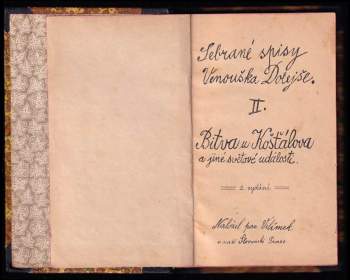 Sebrané spisy
Venouška Dolejše.
II.
Bitva u Košťálova
a jiné světové události.
2. vydání
Nakladatel